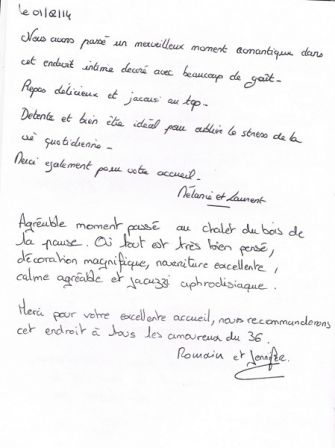 Le 01/02/14
Nous avons passé un merveilleux moment romantique dans
cet endroit intime décoré avec beaucoup de goût.
Repas délicieux et jacuzi au top.
Detente et bien être idéal pour oublier le stress de la
vie quotidienne.
Merci egalement pour votre accueil.
Mélanie et Laurent
Agréable moment passé au chalet du bois de
la pause. Où tout est très bien pensé,
décoration magnifique, nourriture excellente,
calme agréable et jacuzzi aphrodisiaque.
Merci pour votre excellente accueil, nous recommanderons
cet endroit à tous les amoureux du 36.
Romain et Jennifer.